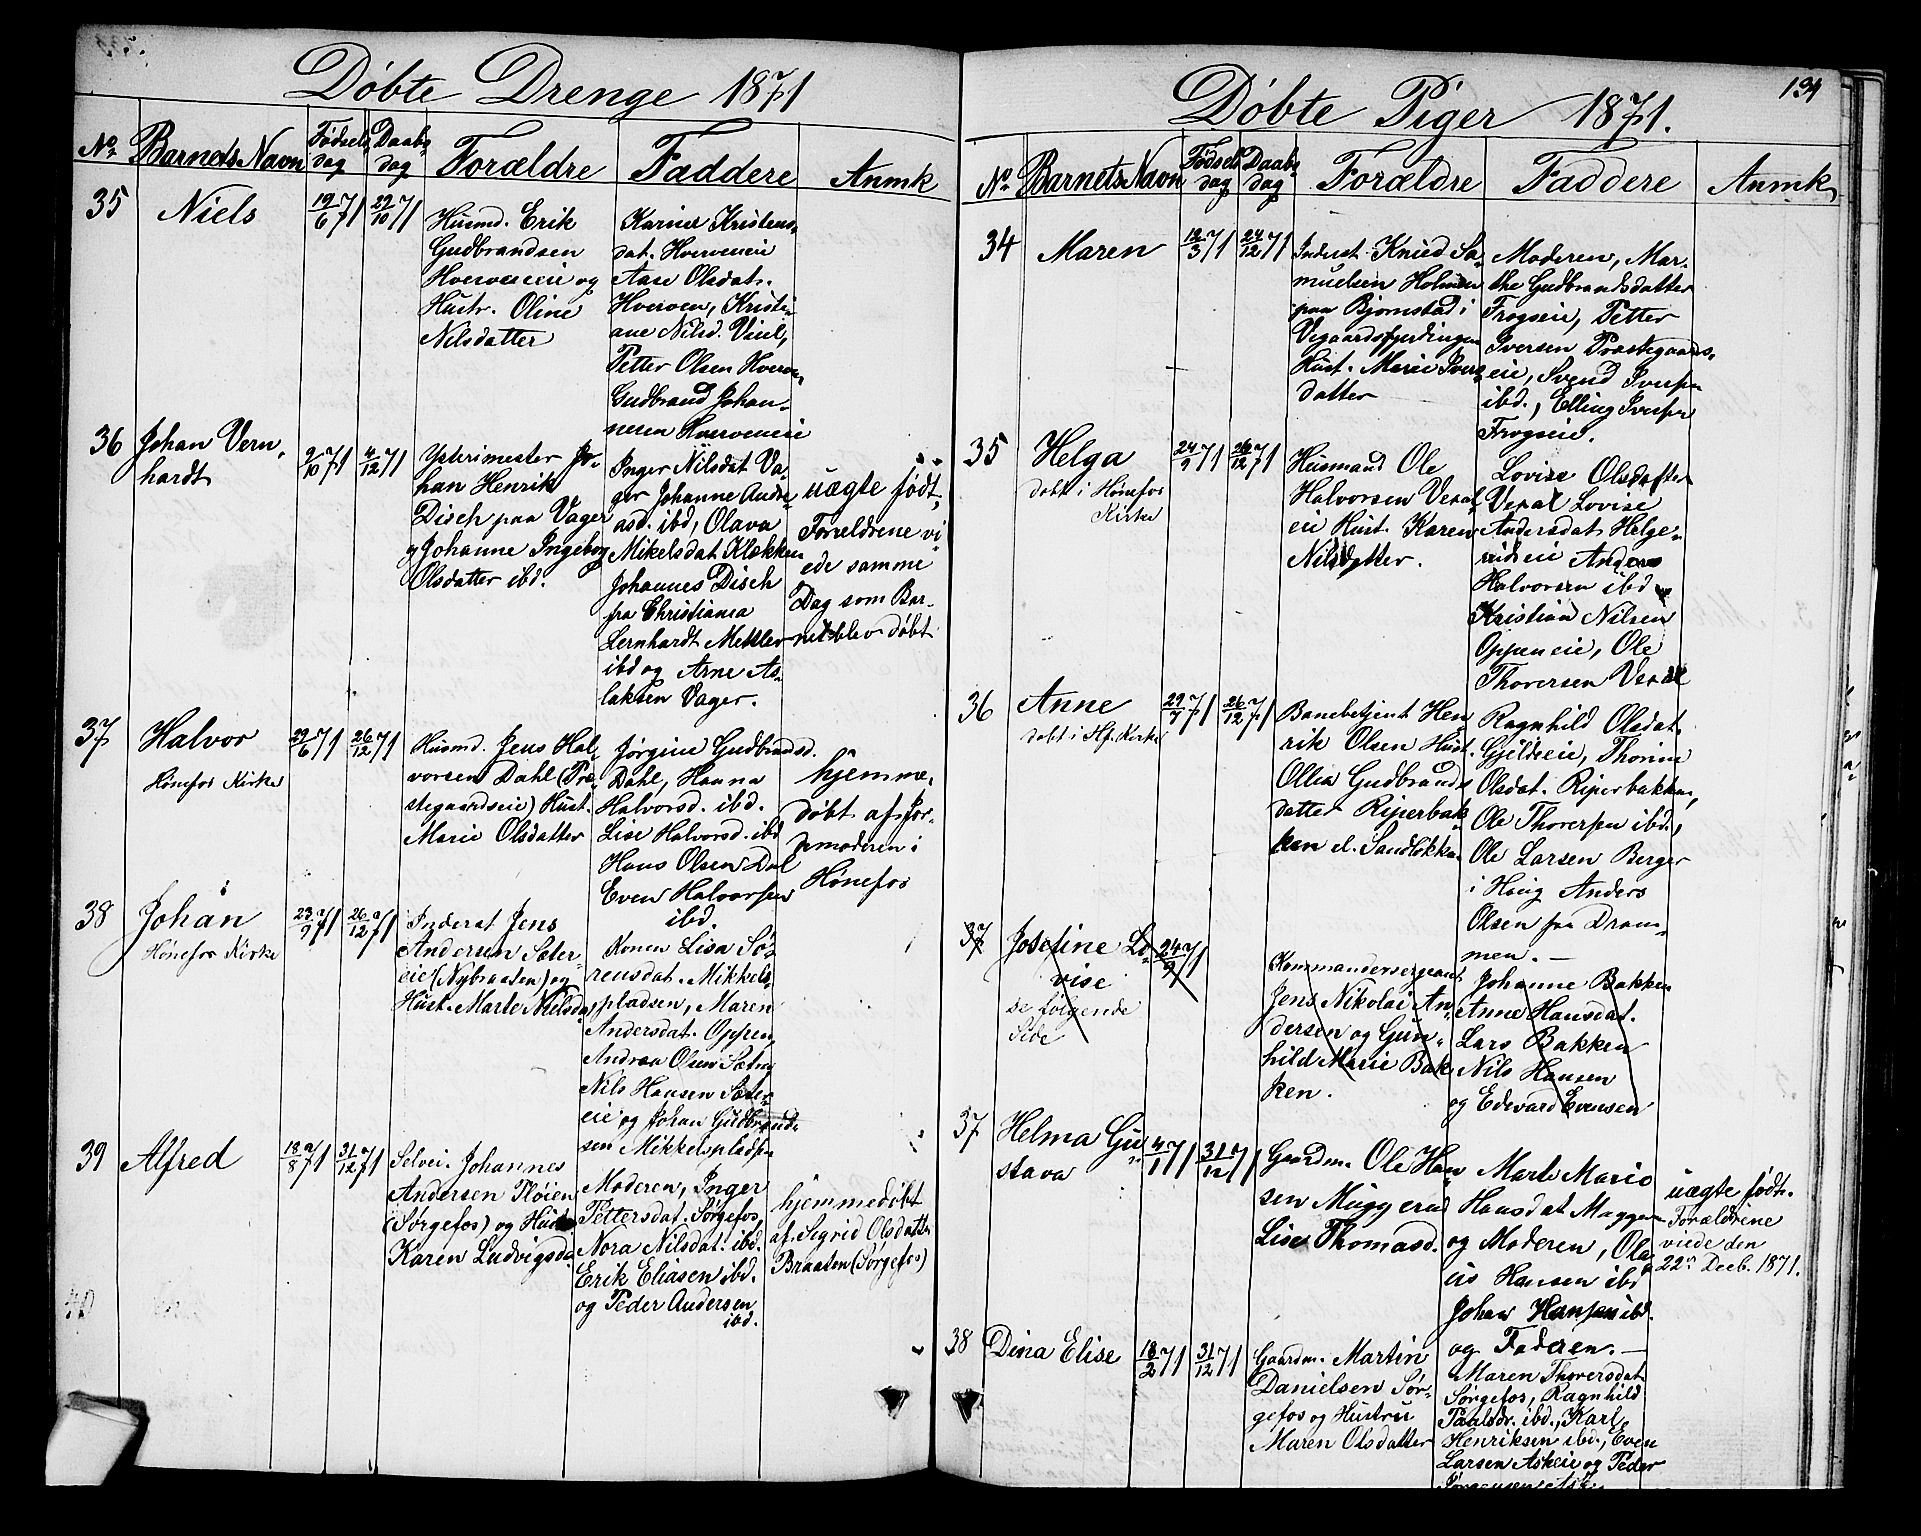 Døbte Drenge 1871
No. Barnets Navn Fødsels dag Daabs dag Forældre Faddere Anmk
35 Niels 19/6 71 29/10 71
Husmd. Erik
Gudbrandsen
Hverveneie og
Hustr. Oline
Nilsdatter
Karine Kristens-
dat. Hverveneie
Aase Olsdat.
Hverven, Kristi-
ane Nilsd. Viul,
Petter Olsen Hverve-
Gudbrand Johan-
nesen Hverveneie
36 Johan Vern-
hardt
2/10 71 4/12 71
Ysterimester Jo-
han Henrik
Disch paa Vager
og Johanne Ingeborg
Olsdatter ibd.
Inger Nilsdat Va-
ger Johanne Andre-
asd. ibd, Olava
Mikelsdat Klækken
Johannes Disch
fra Christiania
Lernhardt Mettler
ibd og Arne As-
laksen Vager.
uægte født,
Forældrene vi-
ede samme
Dag som Bar-
net blev døbt
37 Halvor
Hønefos Kirke
29/6 71 26/12 71
Husmd. Jens Hal-
vorsen Dahl (Præ-
stegaardseie) Hust.
Marie Olsdatter
Jørgine Gudbrandsd.
Dahl, Hanna
Halvorsd. ibd.
Lise Halvorsd. ibd
Hans Olsen Dal
Even Halvorsen
ibd.
hjemme-
døbt af Jor-
demoderen i
Hønefos
38 Johan
Hønefos Kirke
23/9 71 26/12 71
Inderst Jens
Andersen Sæter-
eie (Nybraaten) og
Hust. Marte Nielsda
Konen Lisa Sø-
rensdat. Mikkels-
pladsen, Maren
Andersdat. Oppen,
Andrea Olsen Sætra
Nils Hansen Sæter-
eie og Johan Gudbrand-
sen Mikkelspladsn
39 Alfred
18/8 71 31/12 71
Selvei. Johannes
Andersen Pløien
(Sørgefos) og Hust
Karen Ludvigsda.
Moderen, Inger
Pettersdat. Sørgefos
Nora Nilsdat. ibd.
Erik Eliasen ibd.
og Peder Andersen
ibd.
hjemmedøbt
af Sigrid Olsdatter
Braaten (Sørgefos)
40
134
Døbte Piger 1871.
No. Barnets Navn Fødsels dag Daabs dag Forældre Faddere Anmk
34 Maren 12/3 71 24/12 71
Inderst. Knud Sa-
muelsen Holmen
paa Bjørnstad i
Vegaardsfjerdingen
Hust. Marie Ivers-
datter
Moderen, Mar-
the Gudbrandsdatter
Frogseie, Petter
Iversen Præstegaards-
eie, Svend Iversen
ibd., Elling Iversen
Frogseie.
35 Helga
døbt i Hønefos
Kirke
24/9 71 26/12 71
Husmand Ole
Halvorsen Veral-
eie Hust. Karen
Nilsdatter.
Lovise Olsdatter
Veral Lovise
Andersdat. Helge-
rudeie Anders
Halvorsen ibd
Kristian Nilsen
Oppeneie, Ole
Thoversen Veral
36 Anne
døbt i Hf. Kirke
29/7 71 26/12 71
Banebetjent Hen-
rik Olsen Hust.
Ollea Gudbrands-
datter Riperbak-
ken el. Sandløkka
Ragnhild Olsdat.
Gjeldseie, Thorine
Olsdat. Riperbakken,
Ole Thoversen ibd.,
Ole Larsen Berger
i Haug Anders
Olsen fra Dram-
men. —
37 Josefine Lo-
vise
se følgende
Side
24/9 71
Kommandersergeant
Jens Nikolai An-
dersen og Gun-
hild Marie Bak-
ken.
Johanne Bakken
Anne Hansdat.
Lars Bakken
Nils Hansen
og Edevard Evensen
37 Helma Gu-
stava
4/1 71 31/12 71
Gaardm. Ole Han-
sen Muggerud
Lise Thomasd.
Marte Marie
Hansdat Mugger-
og Moderen, Ola-
us Hansen ibd
Johan Hansen ibd.
og Faderen. —
uægte født.
Forældrene
viede den
22de Decb. 1871.
38 Dina Elise 18/2 71 31/12 71
Gaardm. Martin
Danielsen Sør-
gefos og Hustru
Maren Olsdatter
Maren Thoversdat
Sørgefos, Ragnhild
Paulsdr. ibd., Karl
Henriksen ibd., Even
Larsen Askeie og Peder